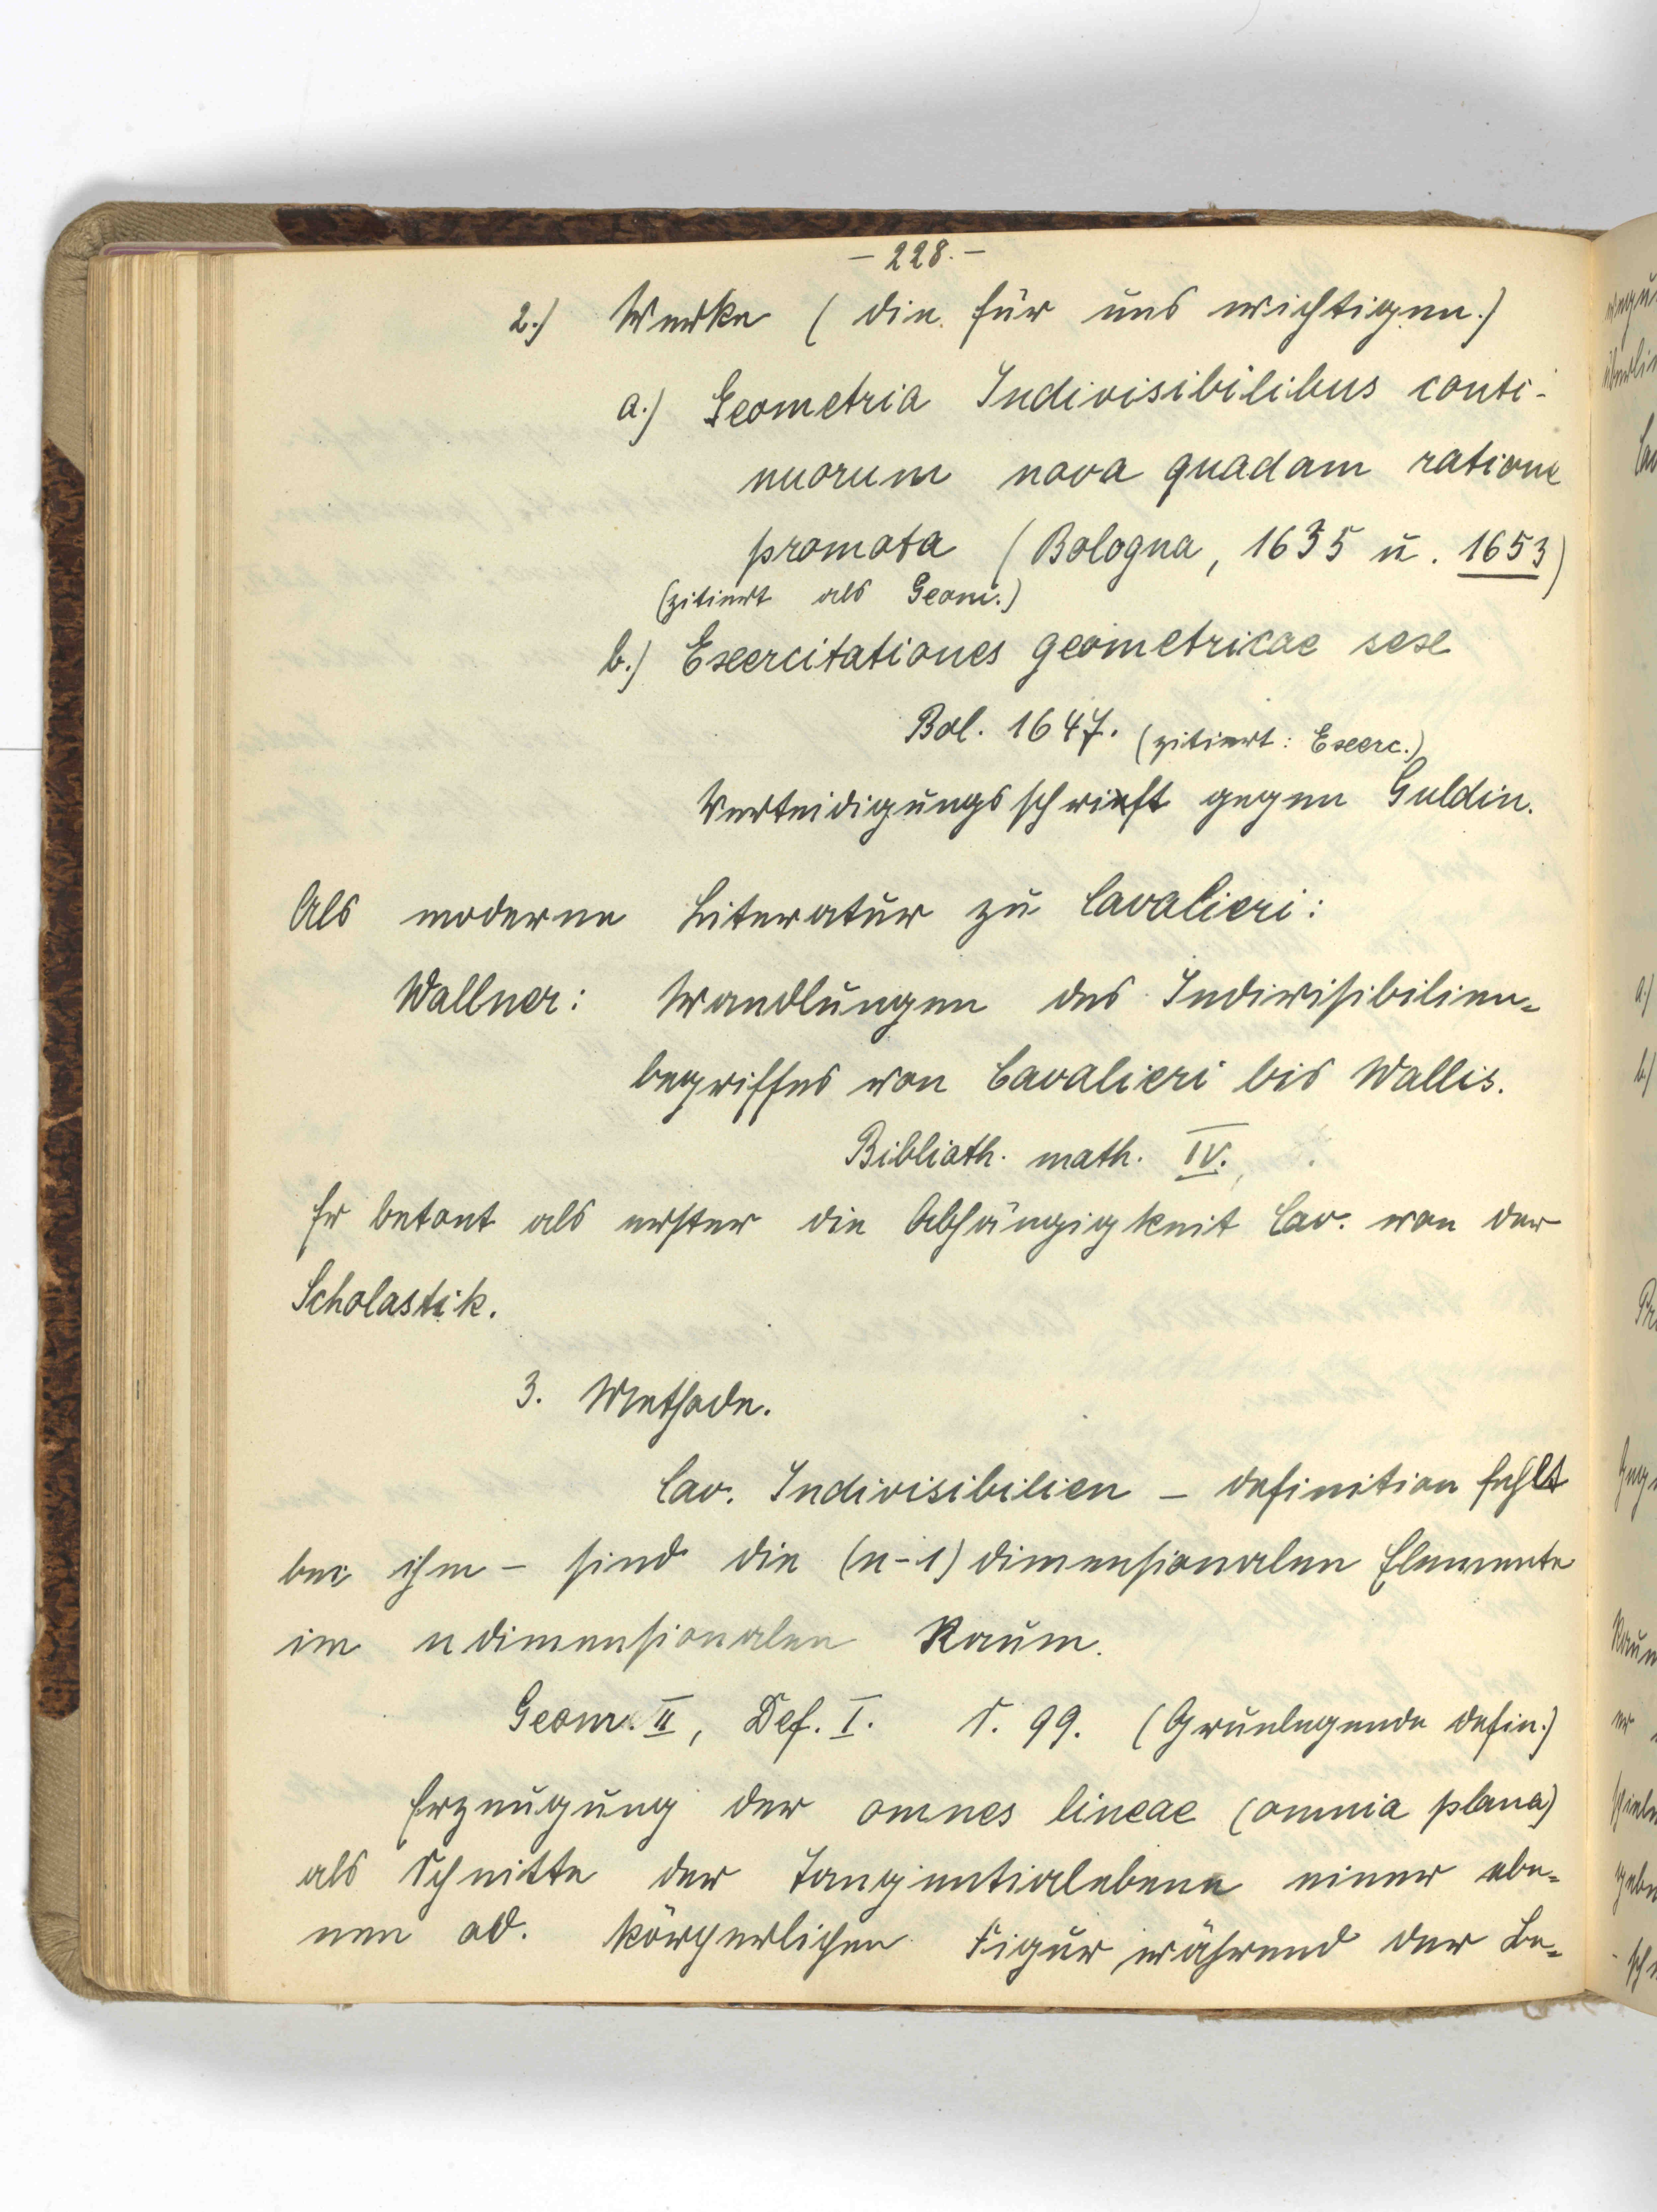 – 228. –
2.) Werke (die für uns wichtigen.)
a.) Geometria Indivisibilibus conti-
nuorum nova quadam ratione
promota (Bologna, 1635 u. 1653)
(zitiert als Geom.)
b.) Exercitationes geometricae sex
Bol. 1647. (zitiert: Exerc.)
Verteidigungsschrift gegen Guldin.
Als moderne Literatur zu Cavalieri:
Wallner: Wandlungen des Indivisibilien-
begriffes von Cavalieri bis Wallis.
Biblioth. math. IV.
Er betont als erster die Abhängigkeit Cav. von der
Scholastik.
3. Methode.
Cav. Indivisibilien – definition fehlt
bei ihm – sind die (n-1) dimensionalen Elemente
im n dimensionalen Raum.
Geom. II, Def. I. S. 99. (Grunlegende defin.)
Erzeugung der omnes lineae (omnia plana)
als Schnitte der Tangentialebene einer ebe-
nen od. körperlichen Figur während der Be-